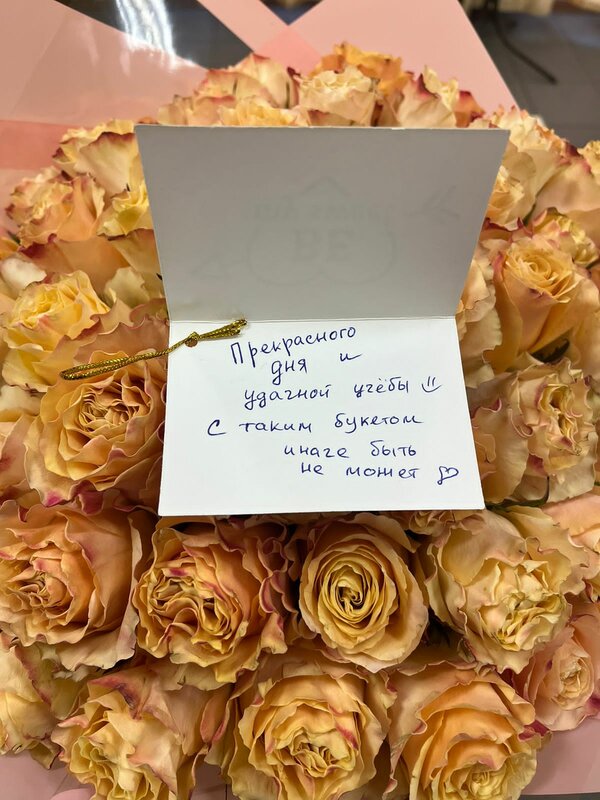 Прекрасного
дня и
удачной учёбы
С таким букетом
иначе быть
не может